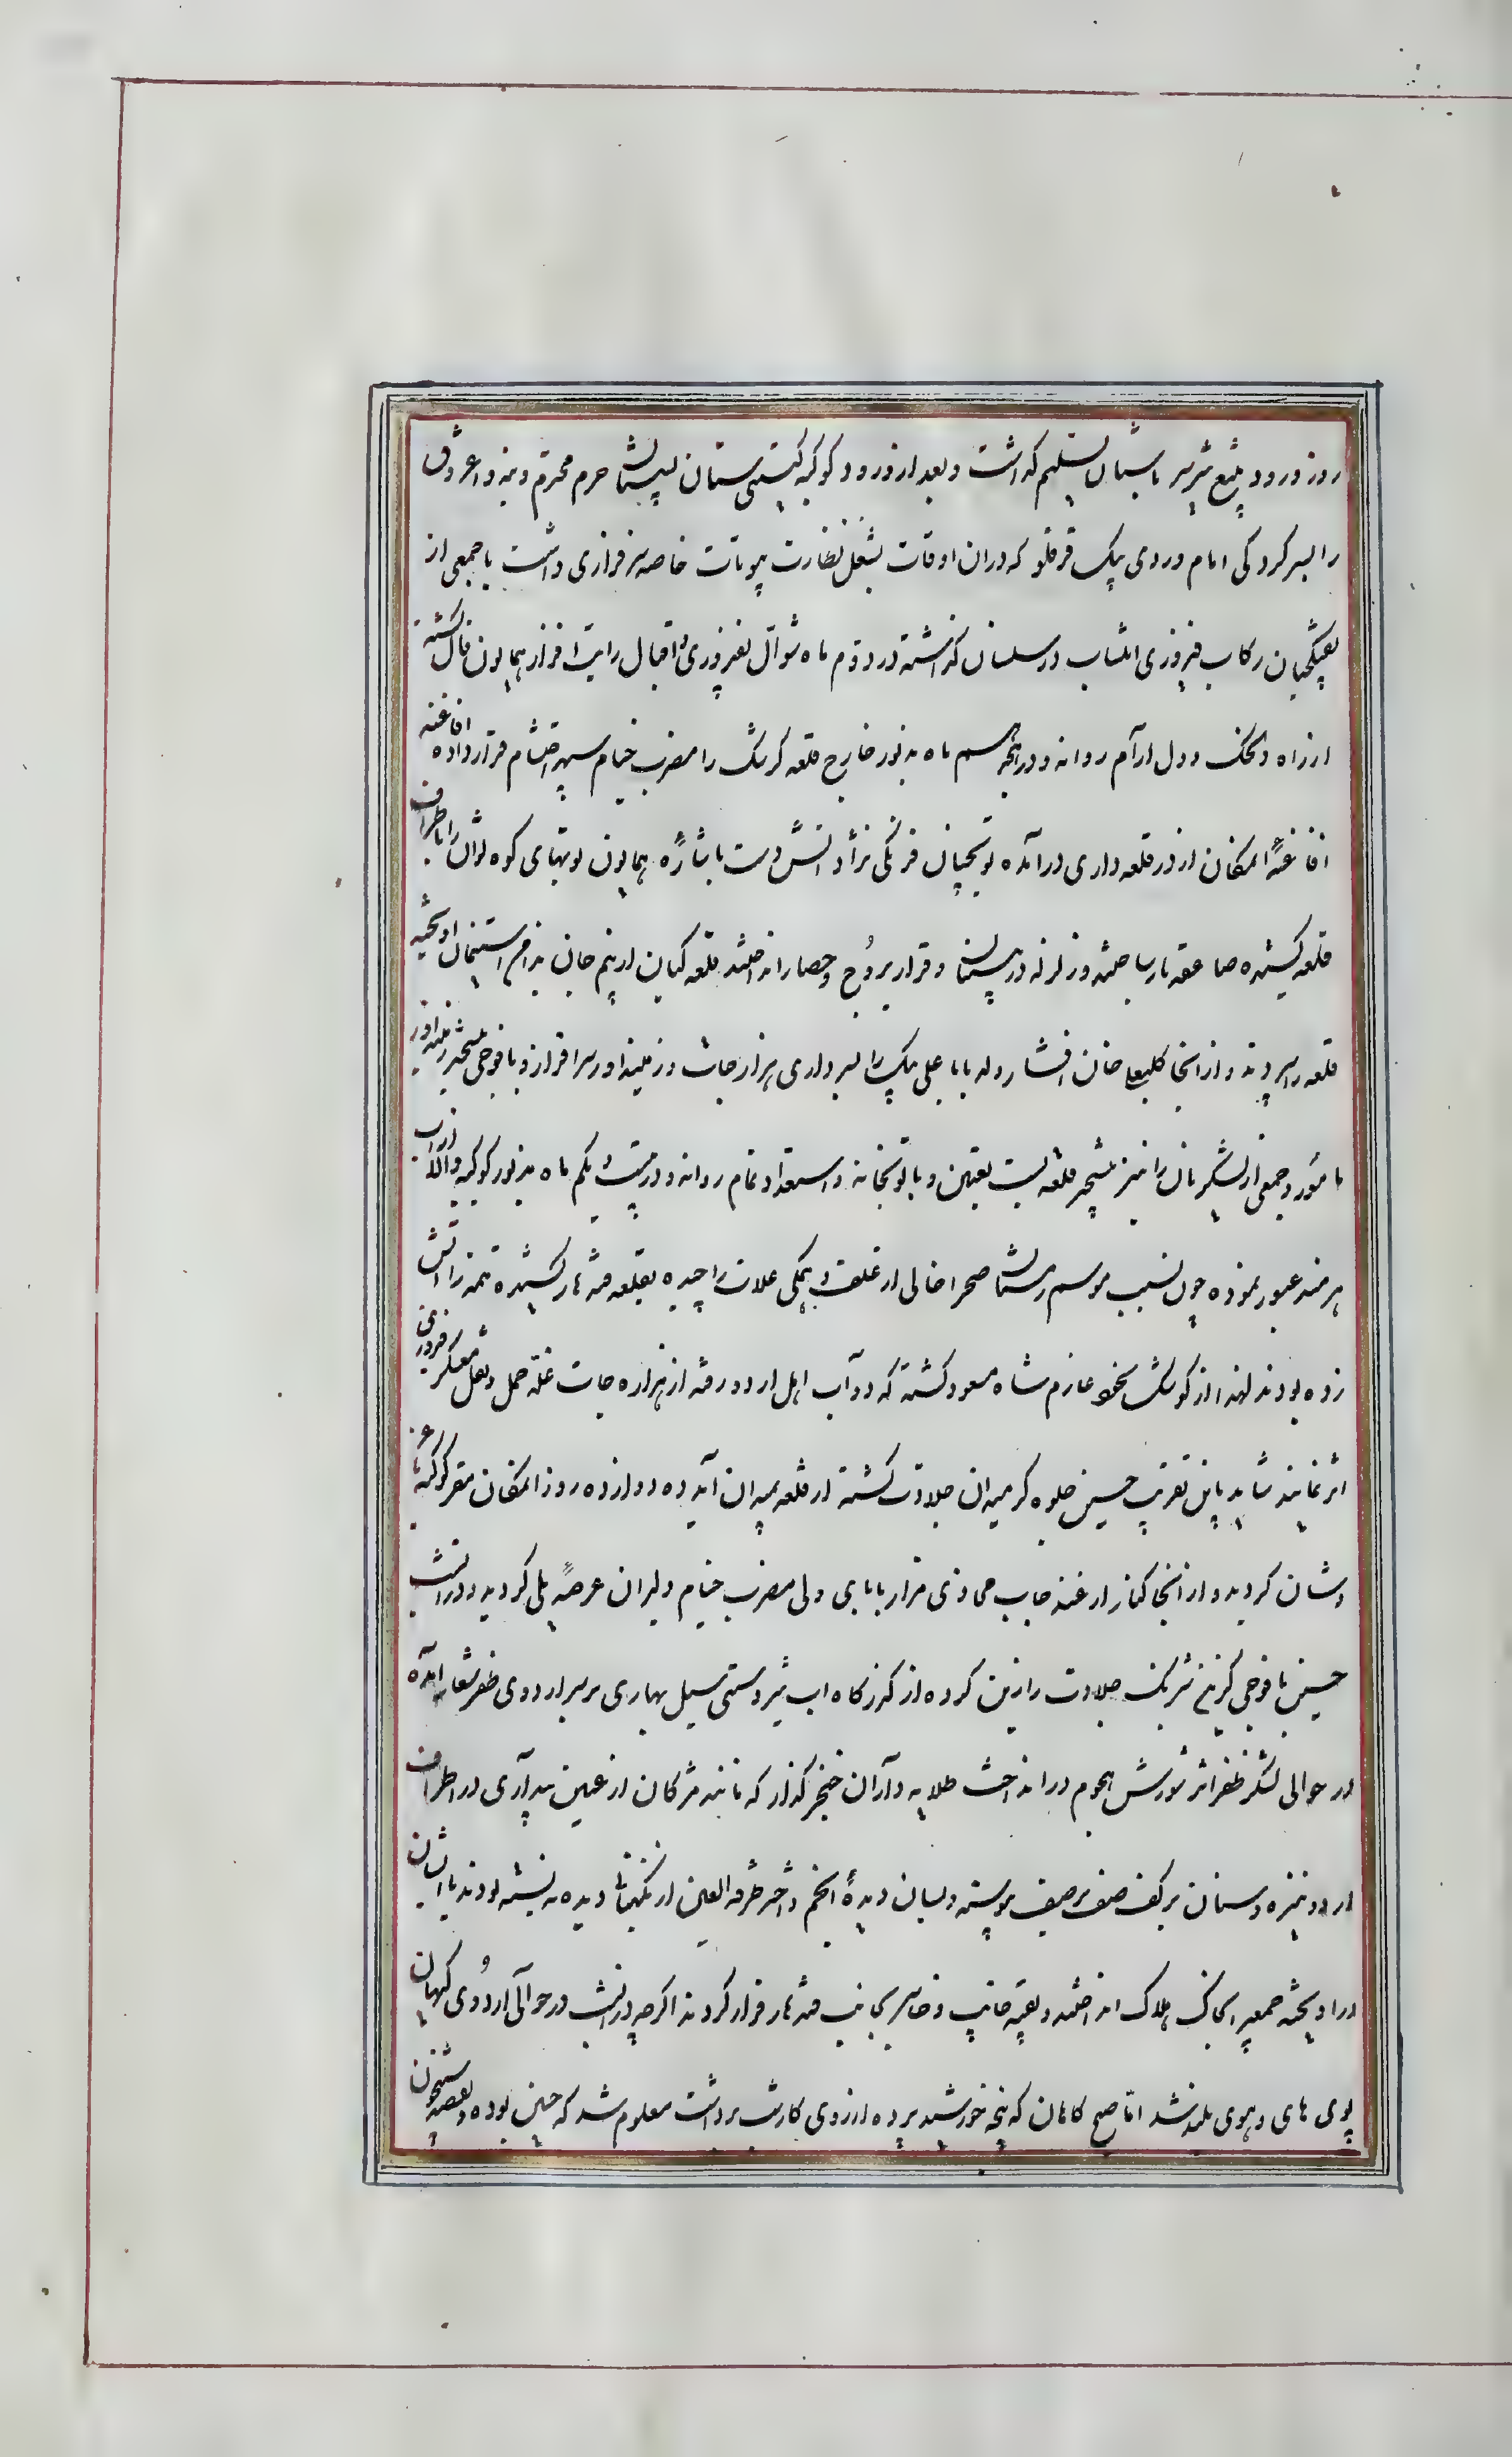 روز ورود تیغ بر سر باستیمال تسلیم گذاشت و بعد از ورود کوکبه گیتی ستان بسیستان حرم محترم و بنه و اغروق
را بسر کردگی امام وردی بیک قرقلو که دران اوقات بشغل نظارت بیوتات خاصه سرفرازی داشت با جمعی از
تفنگچیان رکاب فیروزی انتساب در سیستان گذاشته در دوم ماه شوال بفیروزی و اقبال رایت افراز همایون فال گشته
از راه دلخک و دل ارام روانه و در هجدهم ماه مذبور خارج قلعه کرشک را مضرب خیام سپهر احتشام قرار داده افاغنه
افاغنه المکان از در قلعه داری درآمده توپچیان فرنگی نژاد آتش دست باشاره همایون توپهای کوه توان را باطراف
قلعه کشیده صاعقه بار ساختند و زلزله در بنیان و قرار بروج و حصار انداختند قلعه کیان از بیم جان بدامن استیمان آویخته
قلعه را سپردند و از آنجا کلبعلی خان افشار ولد بابا علی بیک را بسرداری هزارجات و زمینداور سرافراز و با فوجی بتسخیر زمینداور
مامور و جمعی از لشکریان را نیز بتسخیر قلعه بست تعیین و با توپخانه و استعداد تمام روانه و در بیست و یکم ماه مذبور کوکبه والا از آب
هیرمند عبور نموده چون بسبب موسم زمستان صحرا خالی از علف و همگی غلات را چیده بقلعه قندهار کشیده تتمه را آتش
زده بودند لهذا از کوشک نخود عازم شاه مسعود گشته که دواب اهل اردو رفته از هزاره جات غله حمل و نقل معسکر فیروزی
اثر نمایند شاید باین تقریب حسین جلوه گر میدان جلادت گشته از قلعه بمیدان آید ده دوازده روز المکان مقر کوکبه
و شان گردید و از آنجا کنار ارغنداب محاذی مزار بابای ولی مضرب خیام دلیران عرصه یلی گردید و در آنشب
حسین با فوجی گزین بزین جلادت را زین کرده از گذرگاه اب بتردستی سیل بهاری بر سر اردوی ظفر شعار آمده
در حوالی لشکر ظفر اثر شورش هجوم درانداخت طلایه داران خنجر گذار که مانند مژگان از عین بیداری در اطراف
اردو نیزه و سنان بر کف صف بر صف پیوسته و بسان دیده انجم و اختر طرفة العین از نگهبانی دیده نه بسته بودند با ایشان
درآویخته جمعی را بخاک هلاک انداختند و بقیه خائب و خاسر بجانب قندهار فرار کردند اگرچه در آنشب در حوالی اردوی کیهان
پوی های و هوی بلند نشد اما صبح گاهان که پنجه خورشید پرده از روی کار شب برداشت معلوم شد که حسین بوده و بقصد شبیخون